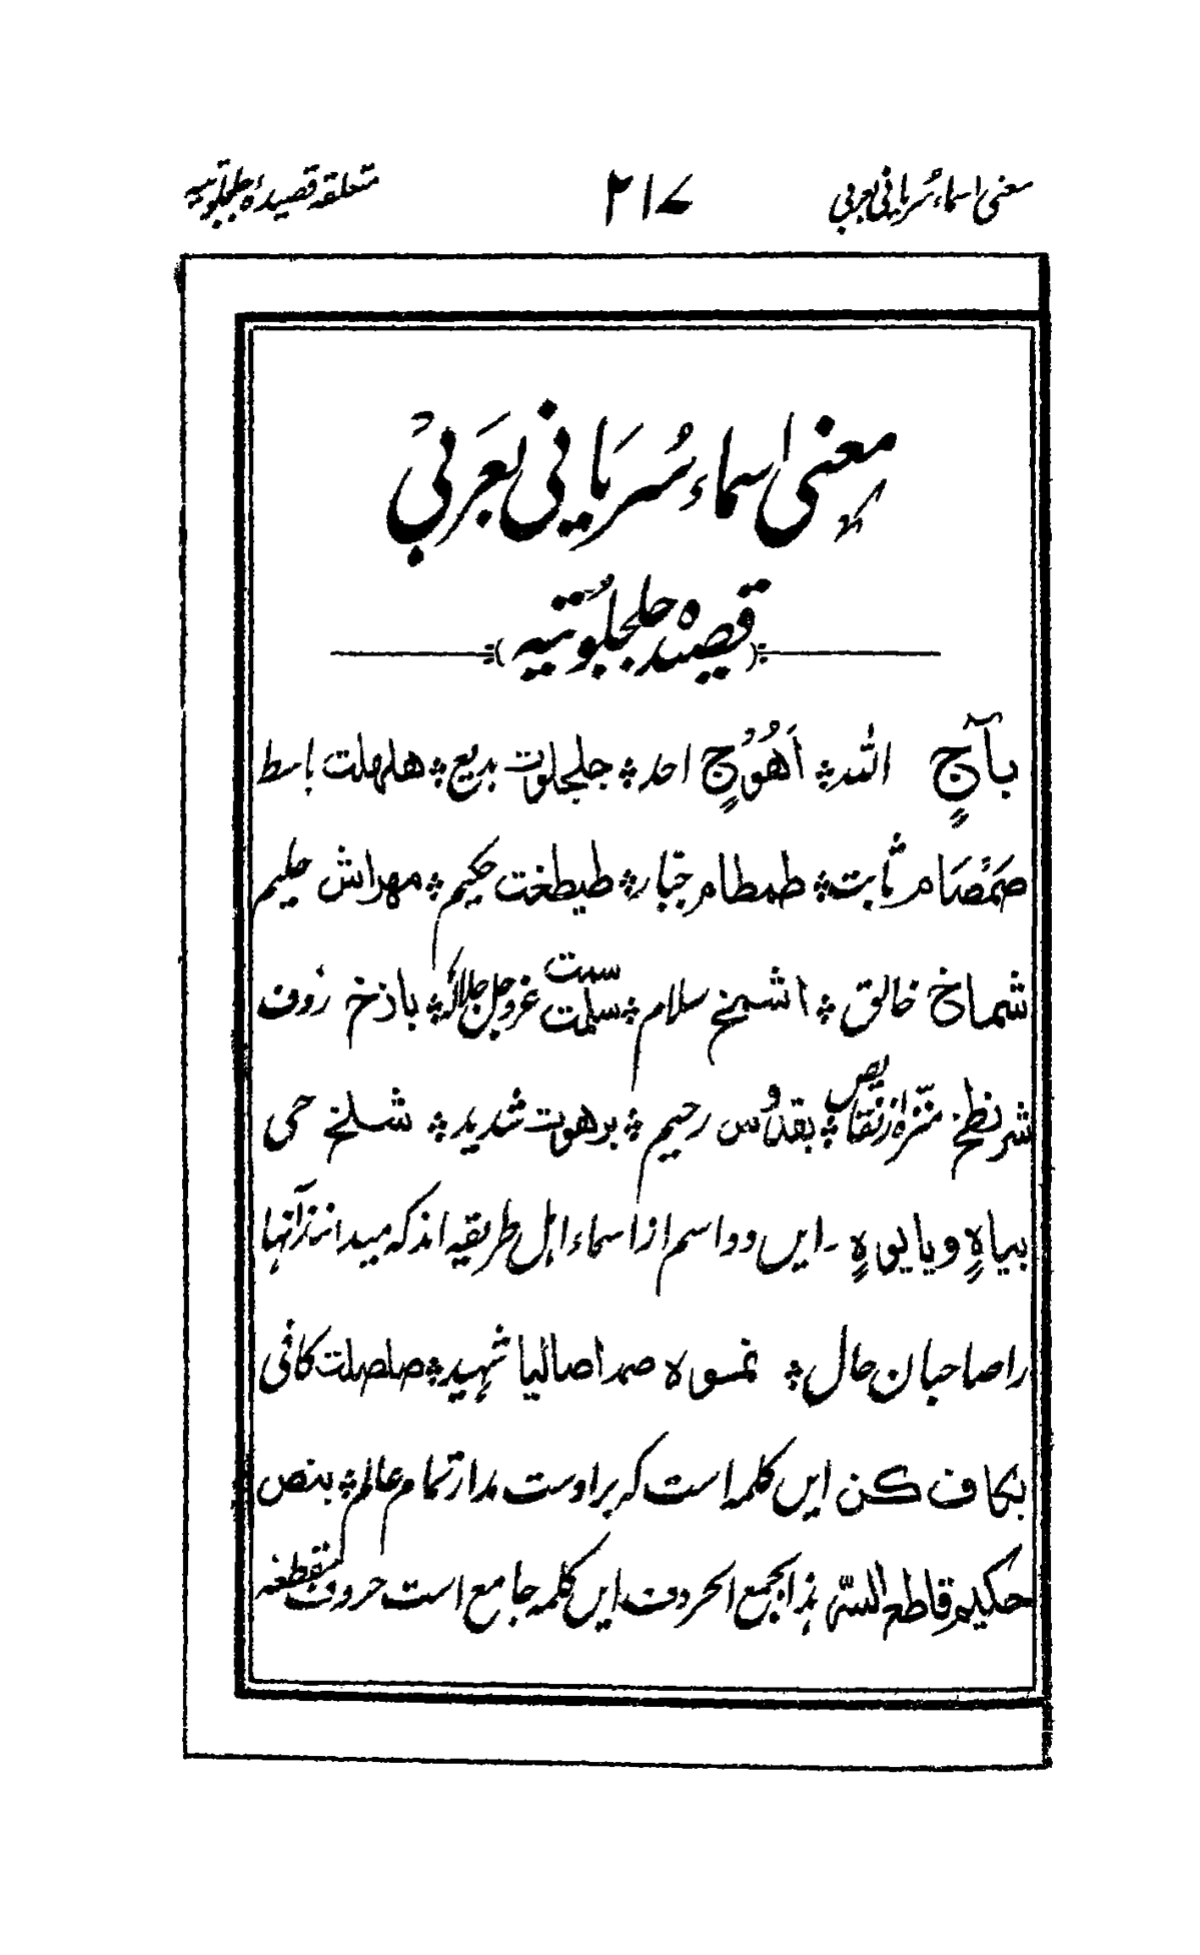 معنی اسماء سُریانی بعربی
۲۱۷
متعلقہ قصیدۂ جلجلوتیہ
معنی اسماء سُریانی بعَربیْ
قصیدہ جلجلُوتیہ
بآجٍ اللہ ۞ اَھُوْجٍ احد ۞ جلجلوت بدیع ۞ ھلہلت باسط
صَمْصَام ثابت ۞ طمطام جبّار ۞ طیطغت حکیم ۞ مہراش حلیم
شماخ خالق ۞ اشمخ سلام ۞ سلمت سمت عزوجل جلالہ ۞ باذخ رؤف
شرنطخ منزہ از نقائص ۞ بقدوس رحیم ۞ برھوت شدید ۞ شلخ حی
بیاہٍ ویایوہٍ ۔ ایں دو اسم از اسماء اہل طریقہ اند کہ میدانند آنہا
را صاحبان حال ۞ نموہ صمد اصالیا شہید ۞ صلصلت کافی
بکاف کن ایں کلمہ است کہ بر اوست مدار تمام عالم ۞ بنص
حکیم قاطع السر ہذا بجمع الحروف ایں کلمہ جامع است حروف مقطعہ